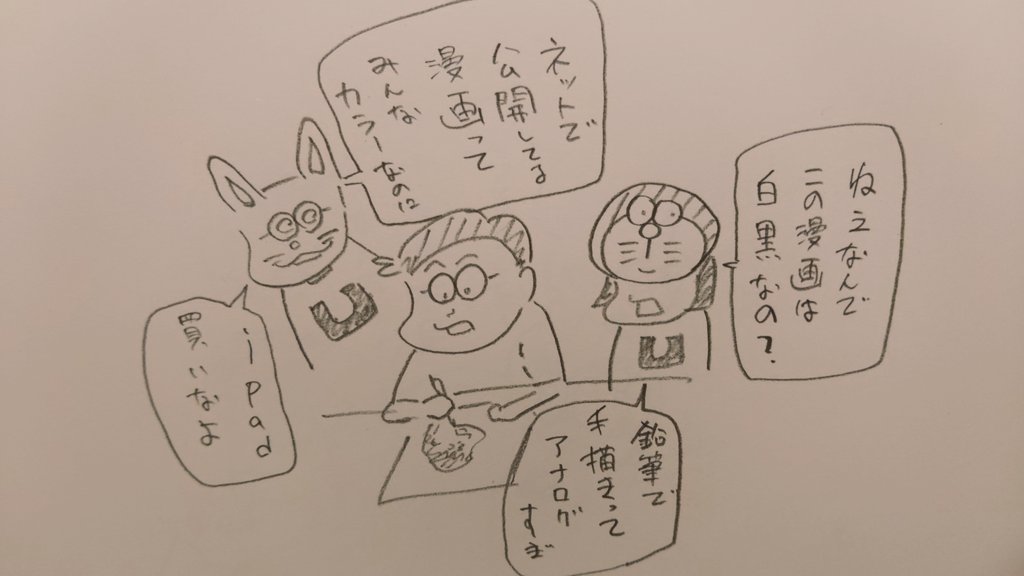 ねえなんで
この漫画は
白黒なの？
ネットで
公開してる
漫画って
みんな
カラーなのに
鉛筆で
手描きって
アナログ
すぎ
ipad
買いなよ